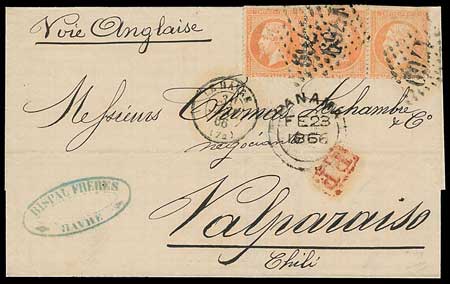 Voie Anglaise
LE HAVRE
(74)
PANAMA
FE 23
1866
Messieurs Thomas Lachambre & Co
négociants
P.P.
BISPAL FRERES
HAVRE
Valparaiso
Chili